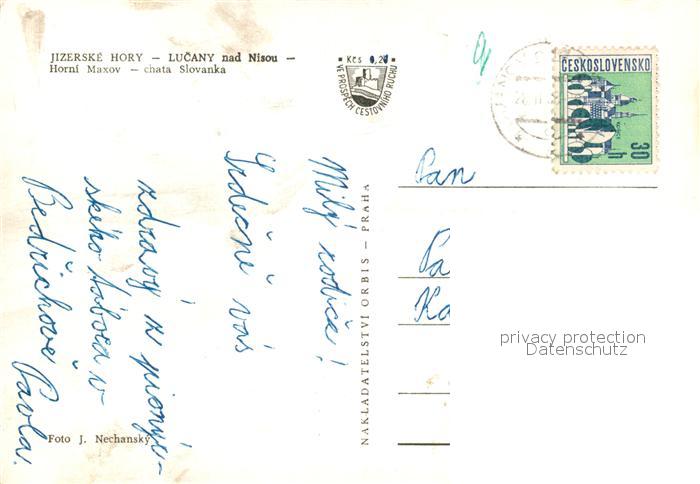 JIZERSKÉ HORY — LUČANY nad Nisou —
Horní Maxov — chata Slovanka
Kčs 0,20
VE PROSPĚCH CESTOVNÍHO RUCHU
ČESKOSLOVENSKO
30
h
Milý rodiče!
Srdečně vás
zdraví z pionýr-
ského tábora v
Bedřichově Pavla.
NAKLADATELSTVÍ ORBIS — PRAHA
Pan
Pa
Ka
privacy protection
Datenschutz
Foto J. Nechanský